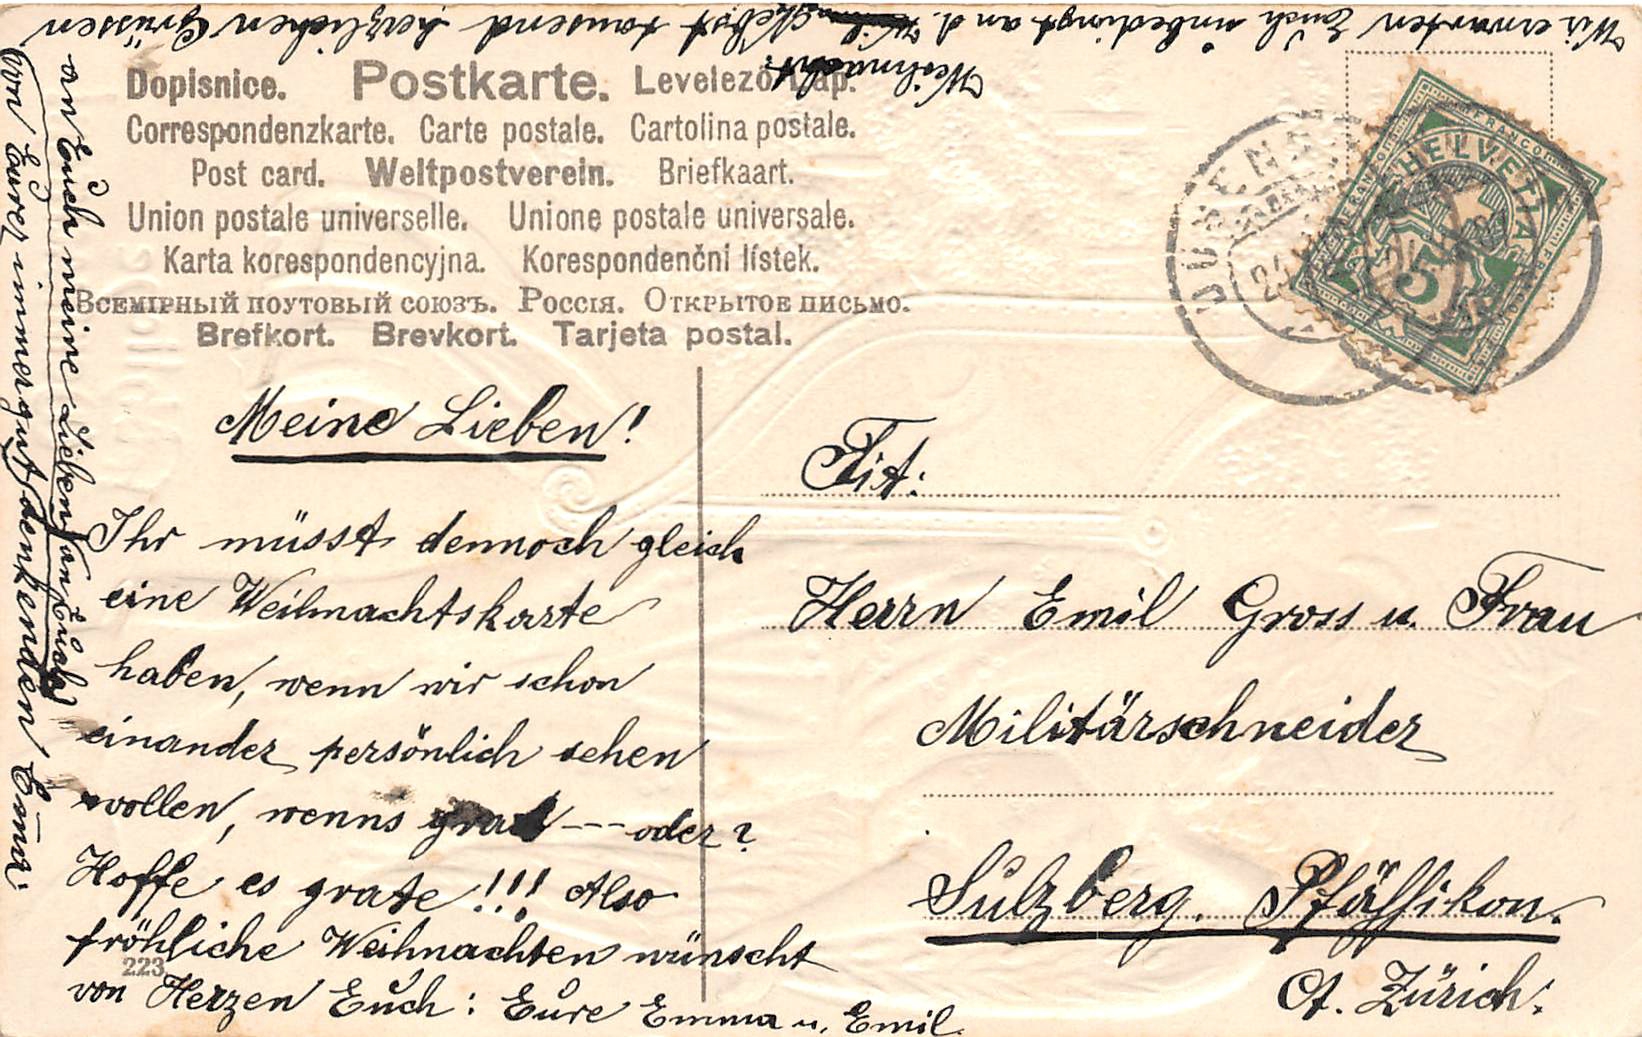 Wir erwarten Euch unbedingt an d. Weihnacht.
Nebst tausend herzlichen Grüssen
an Euch meine Lieben (an Euch)
von Eurer immer gut denkenden Emma.
Dopisnice. Postkarte. Levelező-Lap.
Correspondenzkarte. Carte postale. Cartolina postale.
Post card. Weltpostverein. Briefkaart.
Union postale universelle. Unione postale universale.
Karta korespondencyjna. Korespondenční lístek.
Всемірный поутовый союзъ. Россія. Открытое письмо.
Brefkort. Brevkort. Tarjeta postal.
FRANCO
HELVETIA
5
Meine Lieben!
Ihr müsst dennoch gleich
eine Weihnachtskarte
haben, wenn wir schon
einander persönlich sehen
wollen, wenns grat --- oder?
Hoffe es grate!!! Also
fröhliche Weihnachten wünscht
von Herzen Euch: Eure Emma u. Emil.
223
Tit:
Herrn Emil Gross u. Frau
Militärschneider
Sulzberg. Pfäffikon.
Ct. Zürich.